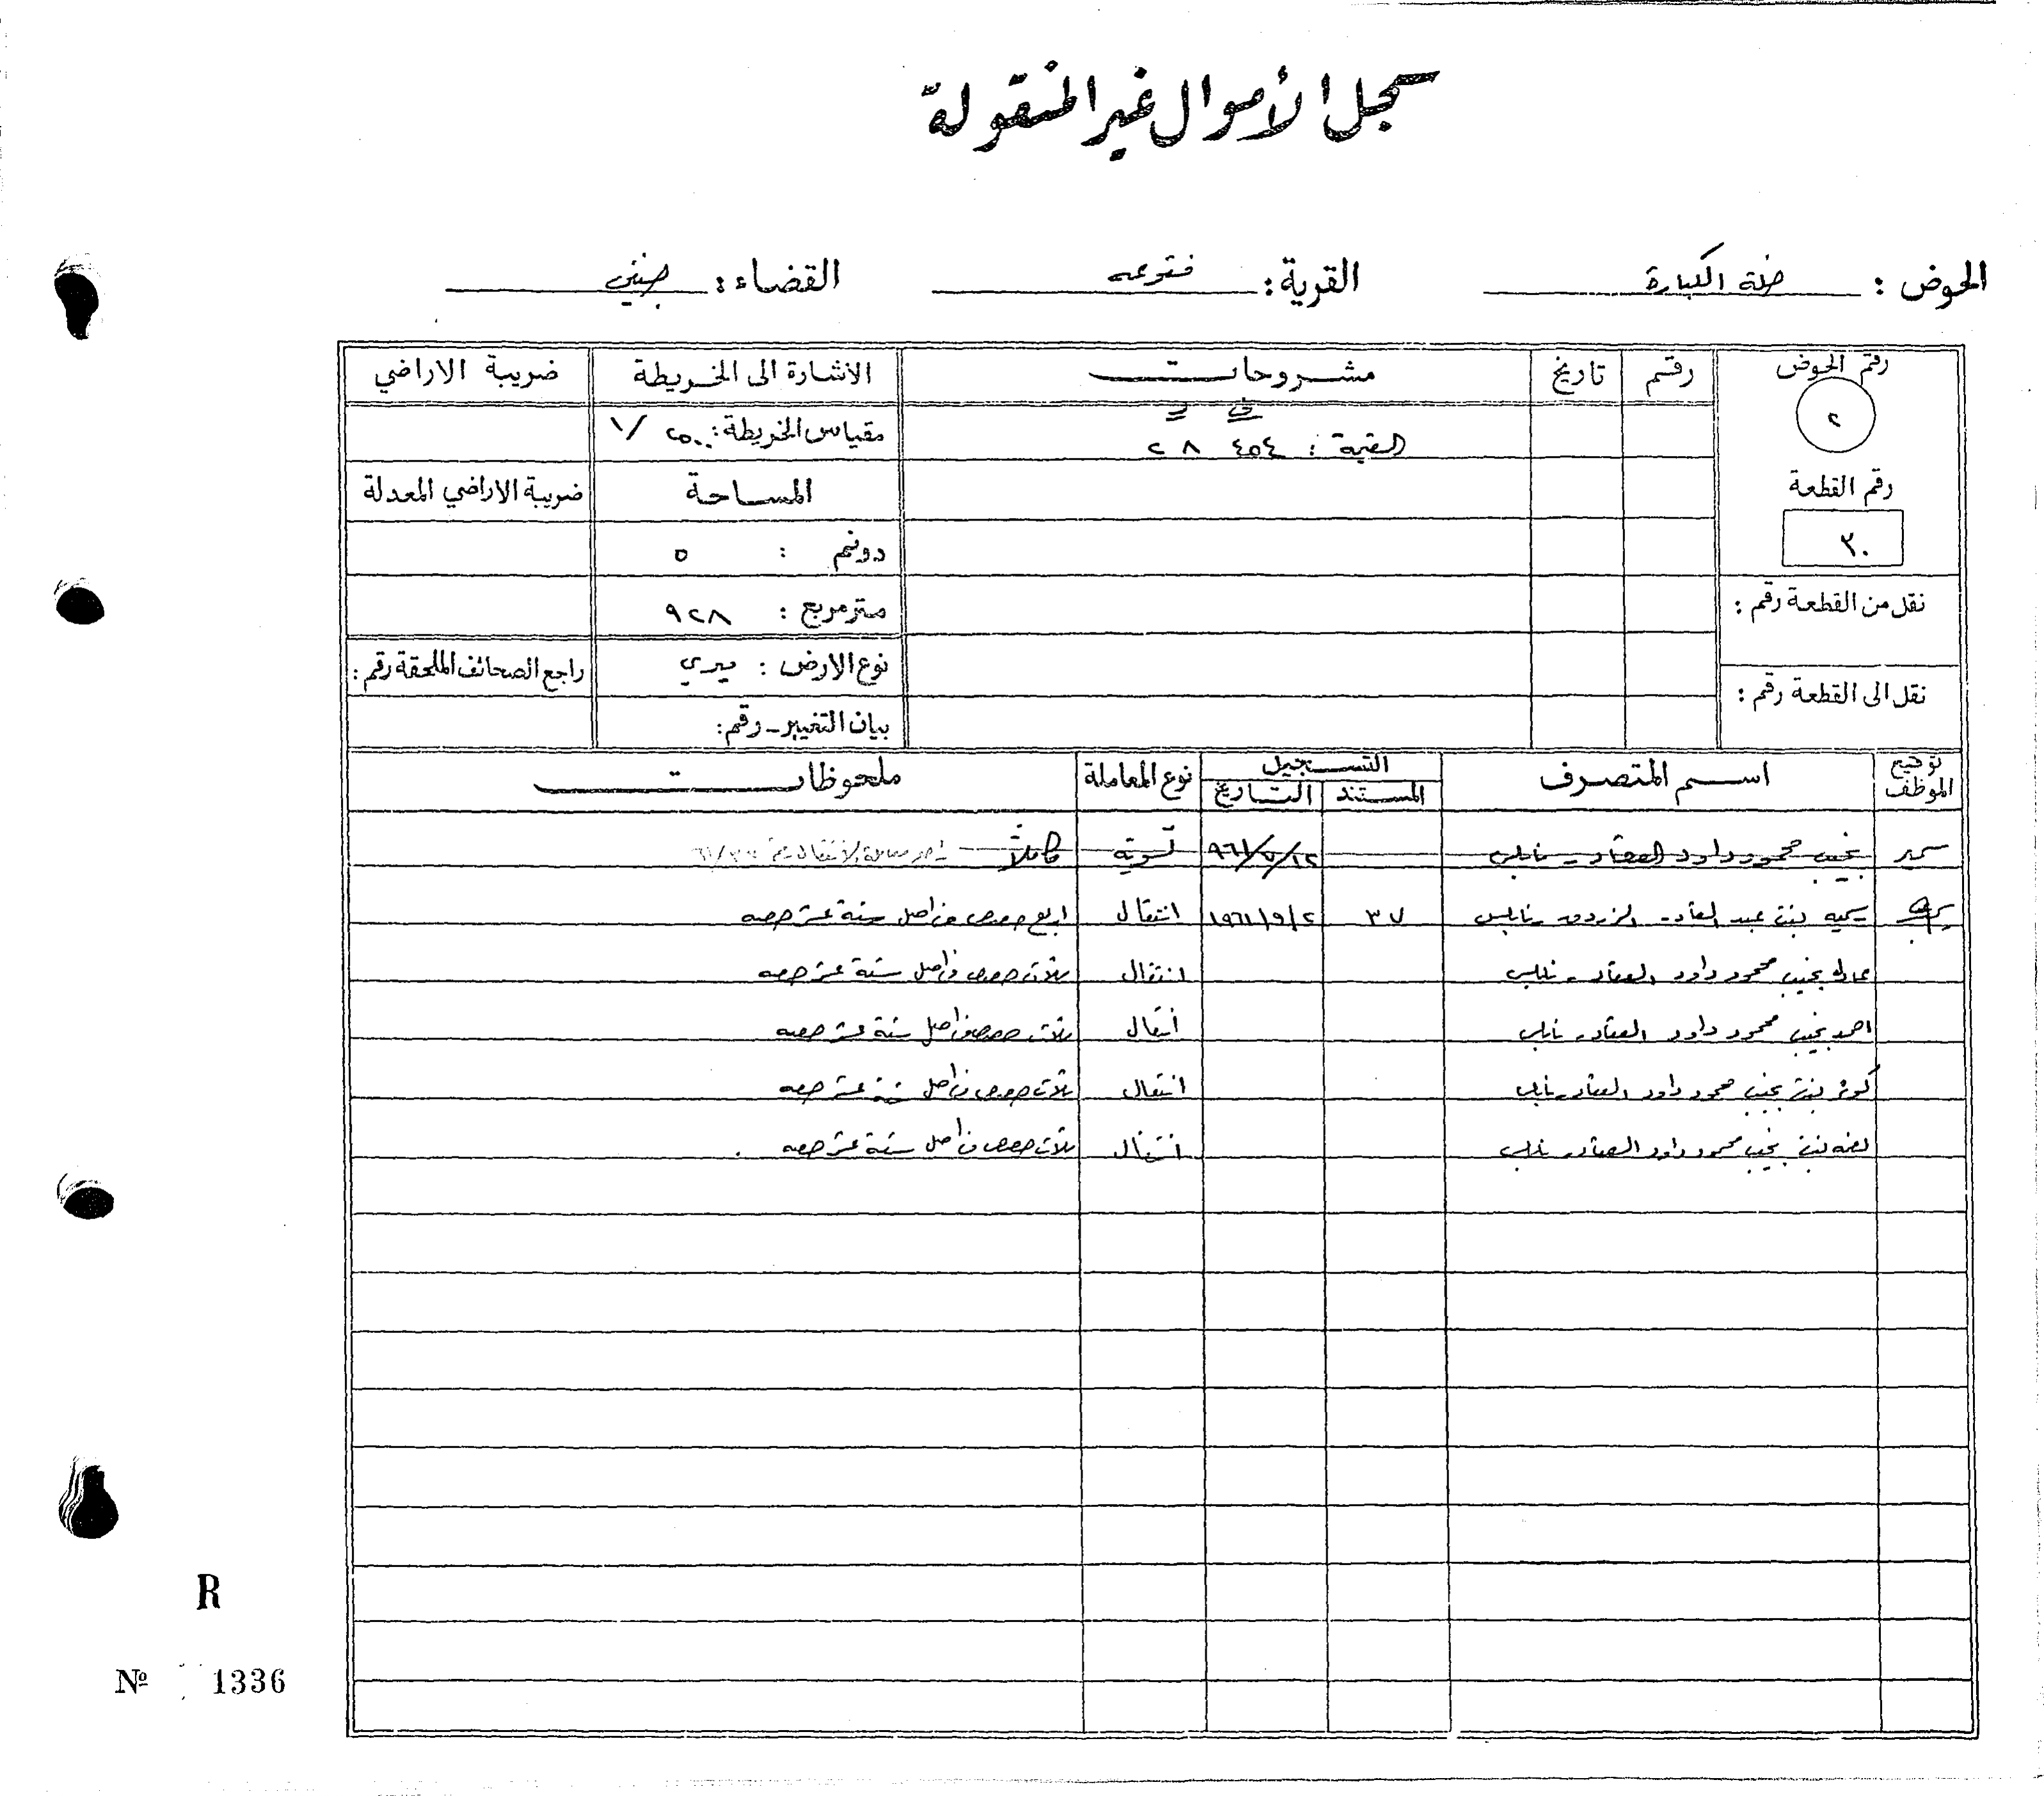 سجل الأموال غير المنقولة
الحوض : خلة الكبارة القرية : فقوعه القضاء : جنين
رقم الحوض رقم تاريخ مشروحات الاشارة الى الخريطة ضريبة الاراضي
٢
ف د
القيمة : ٤٥٤ ٢٨ مقياس الخريطة : ١/٢٥٠٠
رقم القطعة المساحة ضريبة الاراضي المعدلة
٣٠ دونم : ٥
نقل من القطعة رقم : متر مربع : ٩٢٨
نوع الارض : ميري راجع الصحائف الملحقة رقم :
نقل الى القطعة رقم :
بيان التغيير - رقم :
توقيع الموظف اسم المتصرف التسجيل نوع المعاملة ملحوظات
المستند التاريخ
نجيب محمود داود العقاد - نابلس ٩٦١/٧/١٢ تسوية كاملاً
بنت عبد القادر نابلس ٣٧ ١٩٦١/٩/٢ انتقال اربع حصص من اصل ستة عشر حصه
نجيب محمود داود العقاد - نابلس انتقال ثلاث حصص من اصل ستة عشر حصه
احمد نجيب محمود داود العقاد - نابلس انتقال ثلاث حصص من اصل ستة عشر حصه
كوثر بنت نجيب محمود داود العقاد - نابلس انتقال ثلاث حصص من اصل ستة عشر حصه
بنت نجيب محمود داود العقاد - نابلس انتقال ثلاث حصص من اصل ستة عشر حصه .
R
№ 1336